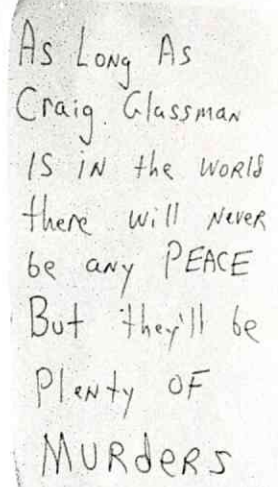 As Long As
Craig Glassman
IS iN the WORld
there will Never
be any PEACE
But they'll be
Plenty OF
MURdeRS